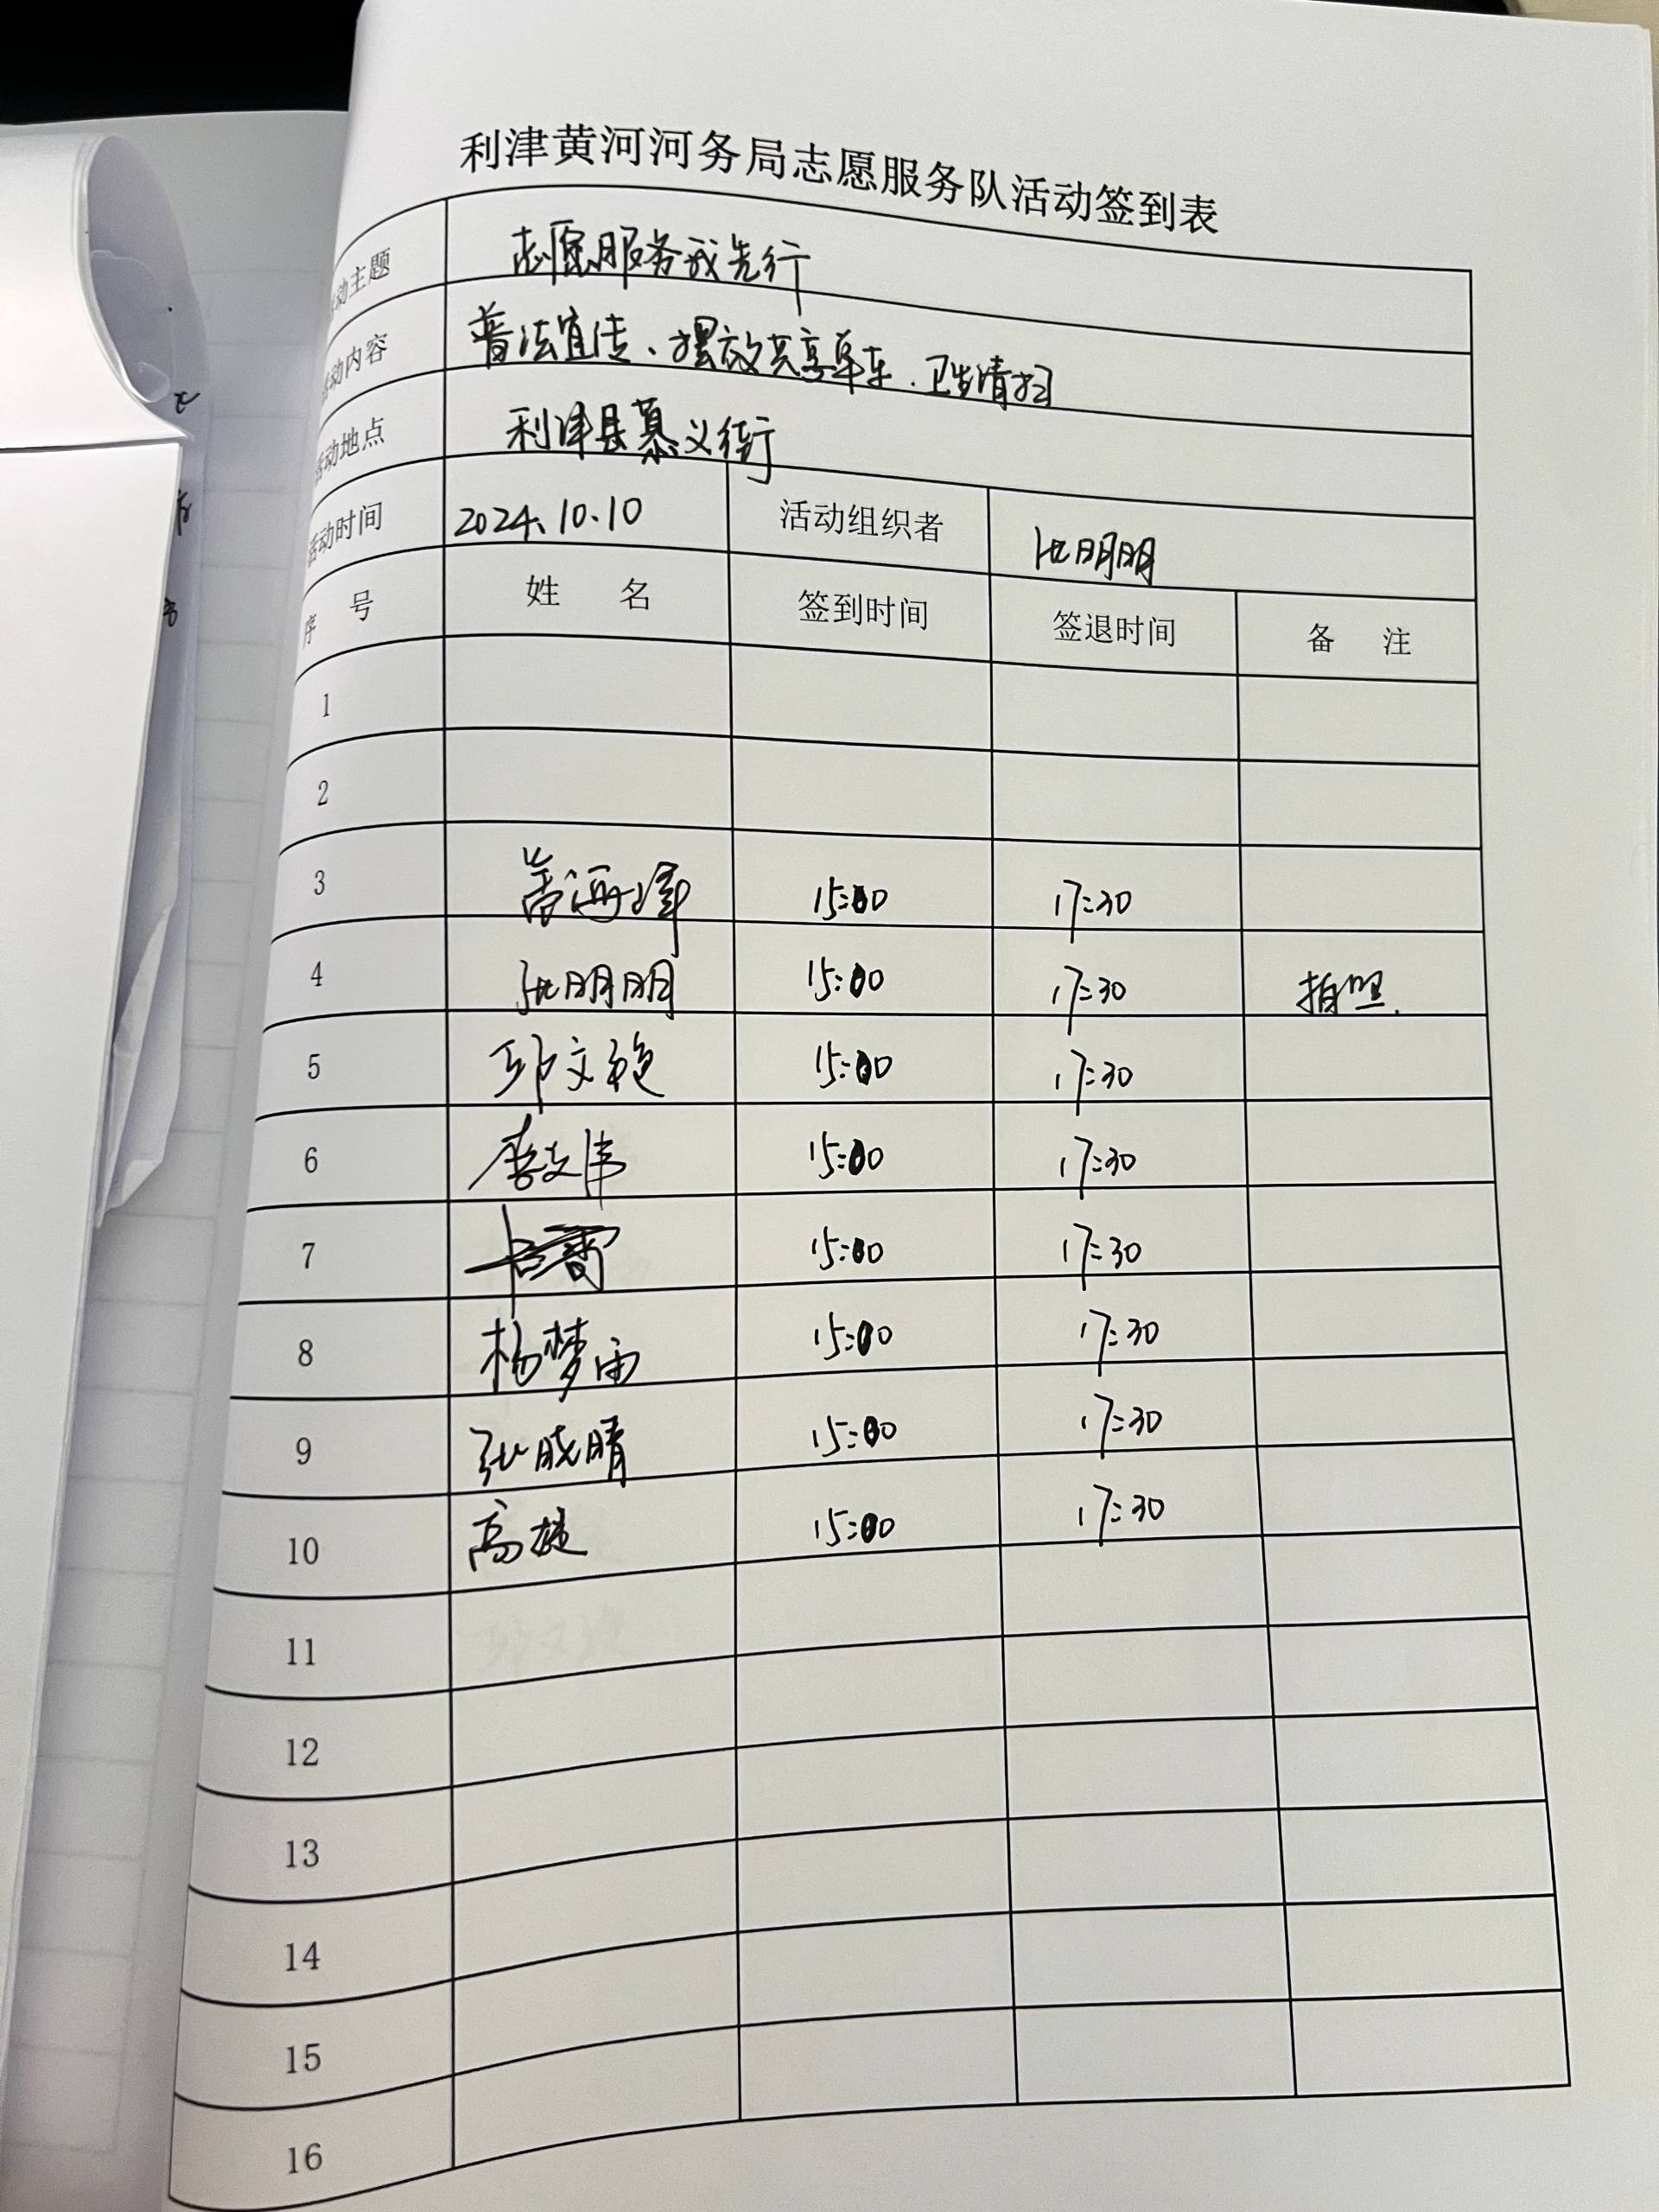 利津黄河河务局志愿服务队活动签到表
动主题 志愿服务我先行
活动内容 普法宣传、摆放共享单车.卫生清扫
活动地点 利津县慕义街
活动时间 2024.10.10 活动组织者 张明明
序 号 姓 名 签到时间 签退时间 备 注
1
2
3 15:00 17:30
4 张明明 15:00 17:30 拍照.
5 邱文艳 15:00 17:30
6 李文伟 15:00 17:30
7 15:00 17:30
8 杨梦雨 15:00 17:30
9 张晓晴 15:00 17:30
10 高捷 15:00 17:30
11
12
13
14
15
16